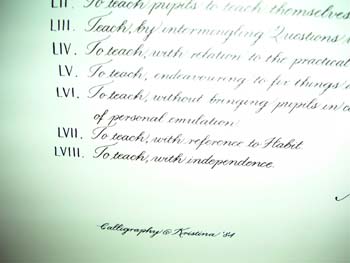 LII. To teach pupils to teach themselves
LIII. Teach, by intermingling Questions
LIV. To teach, with relation to the practical
LV. To teach, endeavouring to fix things
LVI. To teach, without bringing pupils in
of personal emulation.
LVII. To teach, with reference to Habit.
LVIII. To teach, with independence.
Calligraphy © Kristina '84